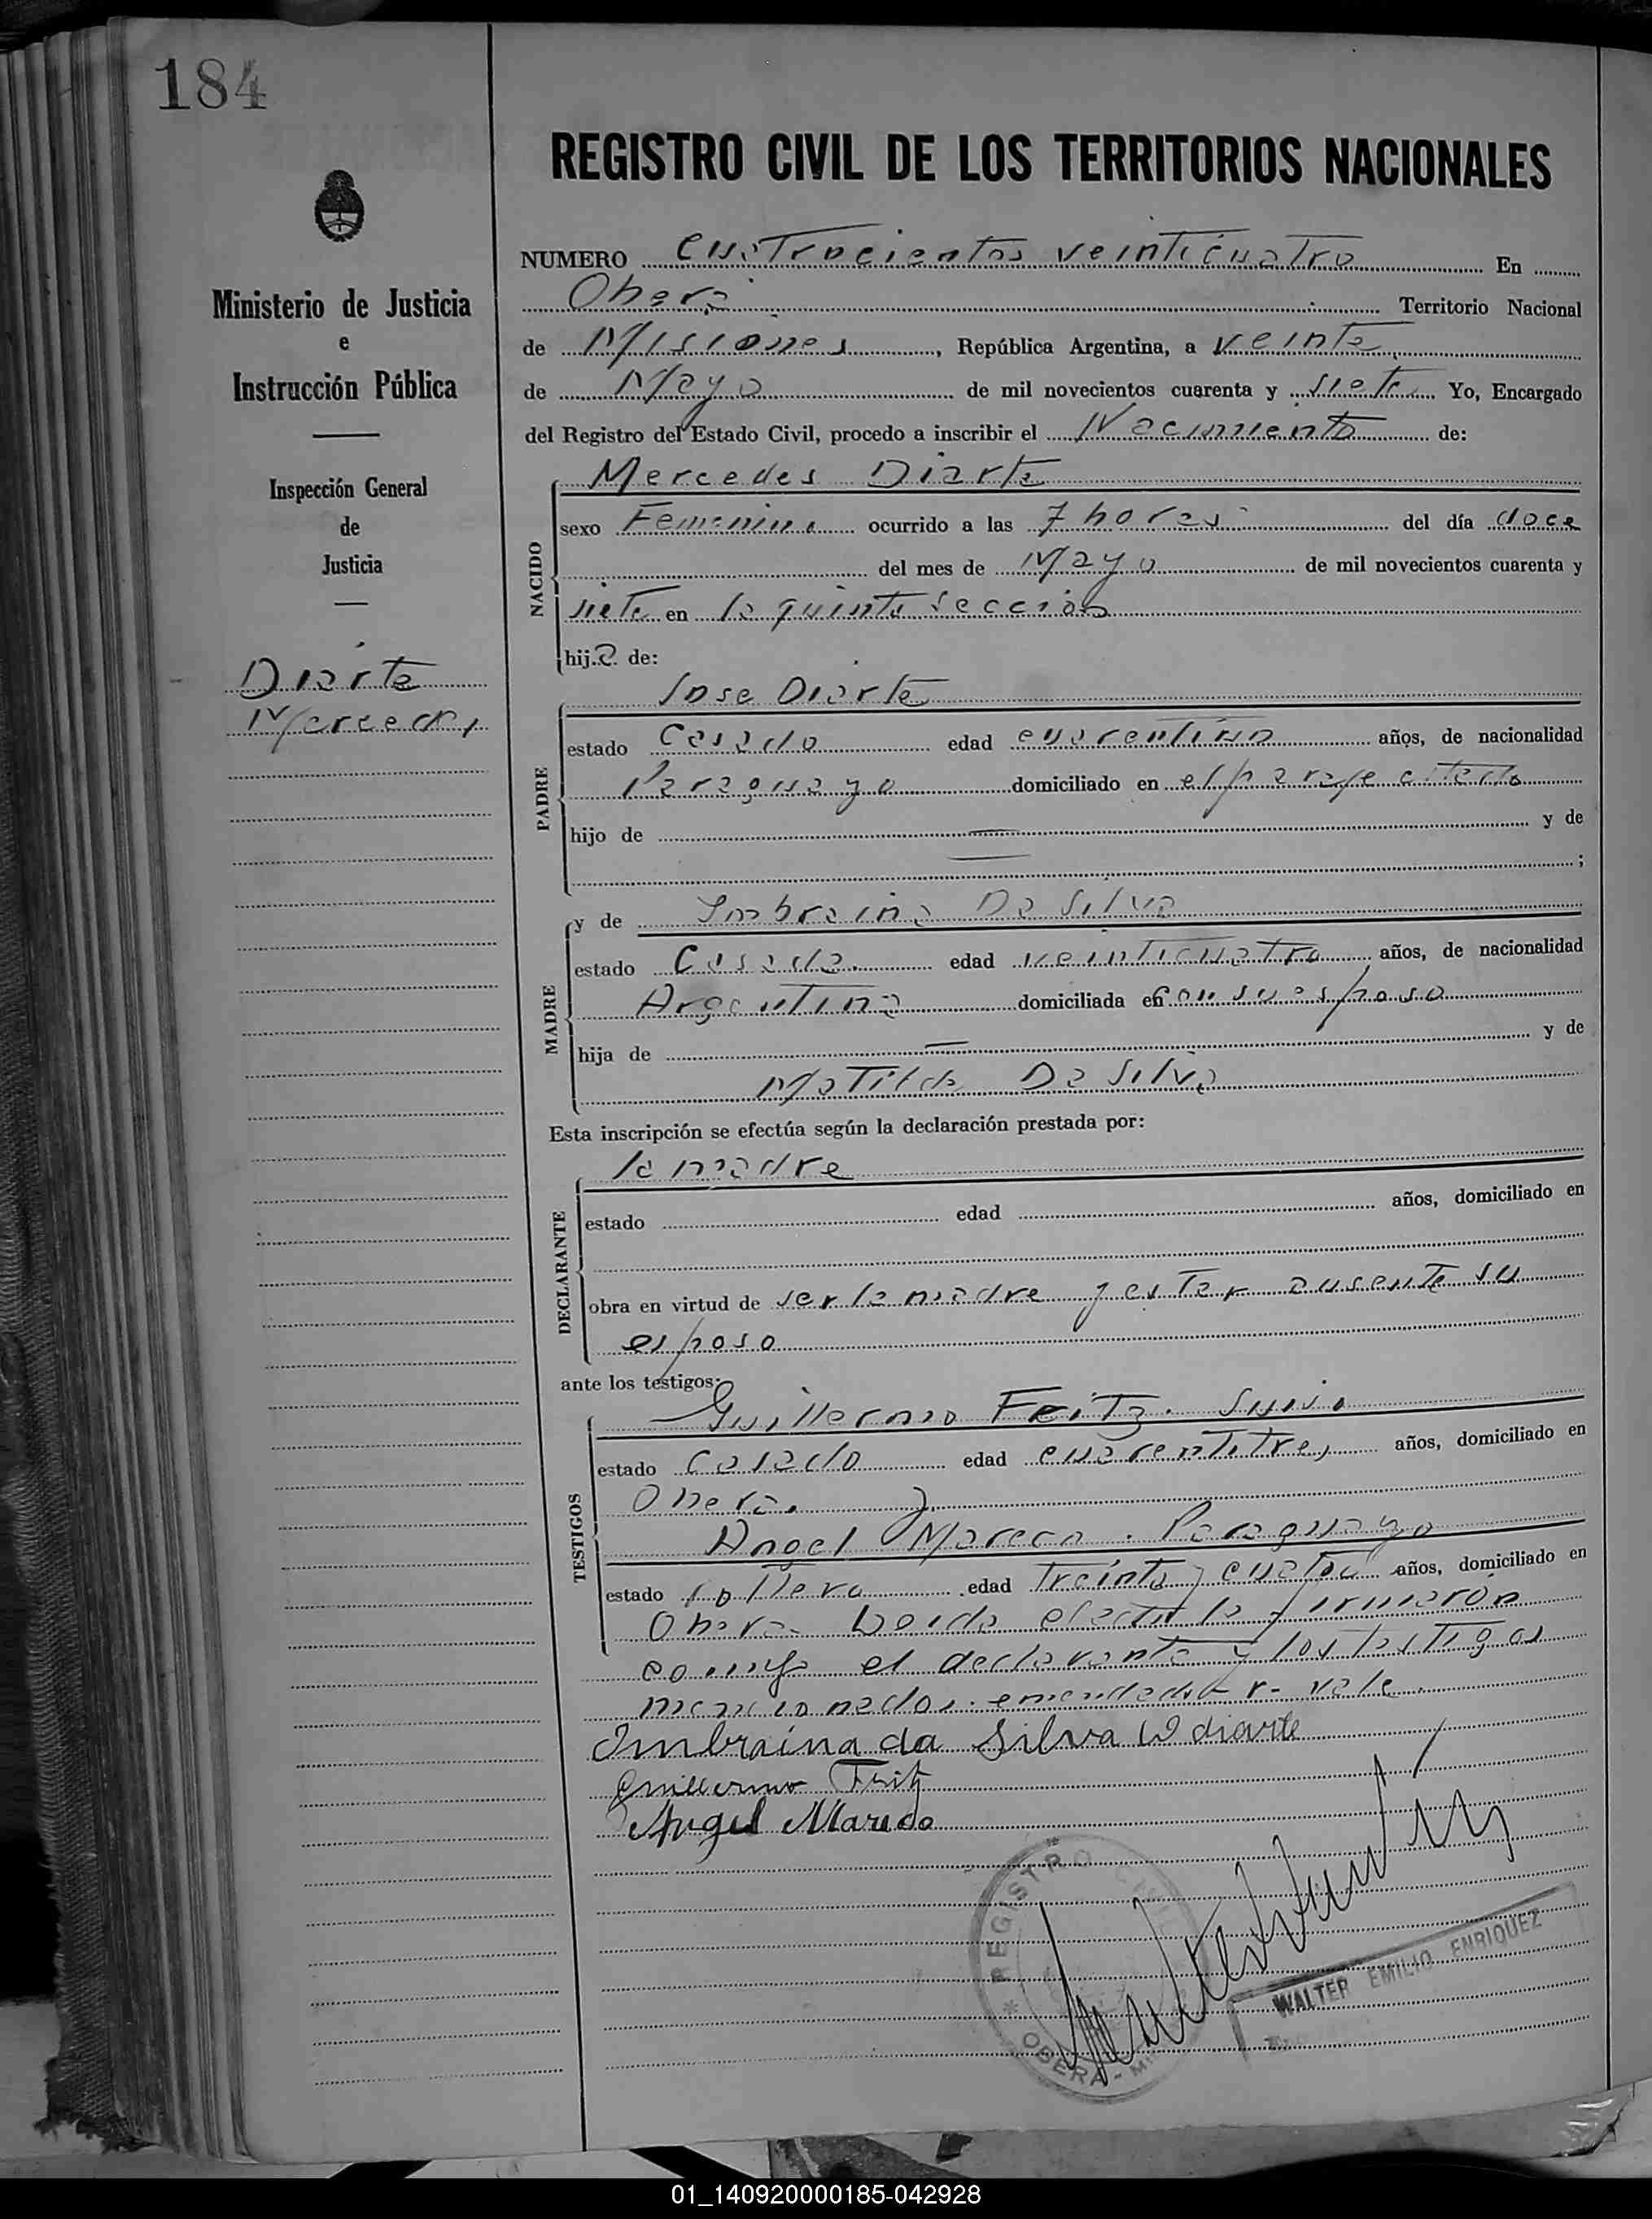 184
REGISTRO CIVIL DE LOS TERRITORIOS NACIONALES
Ministerio de Justicia
e
Instrucción Pública
Inspección General
de
Justicia
Diarte
Mercedes
NUMERO Cuatrocientos veinticuatro En
Oberá Territorio Nacional
de Misiones, República Argentina, a veinte
de Mayo de mil novecientos cuarenta y siete Yo, Encargado
del Registro del Estado Civil, procedo a inscribir el Nacimiento de:
Mercedes Diarte
NACIDO
sexo Femenino ocurrido a las 7 horas del día doce
del mes de Mayo de mil novecientos cuarenta y
siete en la quinta seccion
hija de:
Jose Diarte
PADRE
estado Casado edad cuarentiun años, de nacionalidad
Paraguayo domiciliado en el paraje citado
hijo de — y de
— ;
y de Imbraina Da Silva
MADRE
estado Casada. edad veinticuatro años, de nacionalidad
Argentina domiciliada en con su esposo
hija de — y de
Matilde Da Silva
Esta inscripción se efectúa según la declaración prestada por:
la madre
DECLARANTE
estado edad años, domiciliado en
obra en virtud de ser la madre y estar ausente su
esposo
ante los testigos:
Guillermo Feitz. Suizo
TESTIGOS
estado Casado edad cuarentitres años, domiciliado en
Oberá. y
Angel Mareco. Paraguayo
estado soltero edad treinta y cuatro años, domiciliado en
Oberá. Leida el acta la firmaron
conmigo el declarante y los testigos
mencionados. enmendado r- vale.
Imbraina da Silva D diarte
Guillermo Fritz
Angel Mareco
REGISTRO CIVIL
OBERA - M
WALTER EMILIO ENRIQUEZ
01_140920000185-042928